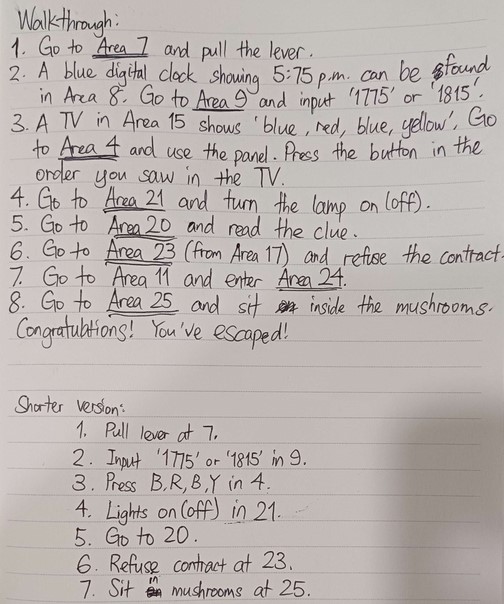 Walkthrough:
1. Go to Area 7 and pull the lever.
2. A blue digital clock showing 5:75 p.m. can be found
in Area 8. Go to Area 9 and input '1775' or '1815'.
3. A TV in Area 15 shows 'blue, red, blue, yellow'. Go
to Area 4 and use the panel. Press the button in the
order you saw in the TV.
4. Go to Area 21 and turn the lamp on (off).
5. Go to Area 20 and read the clue.
6. Go to Area 23 (from Area 17) and refuse the contract.
7. Go to Area 11 and enter Area 24.
8. Go to Area 25 and sit inside the mushrooms.
Congratulations! You've escaped!
Shorter version:
1. Pull lever at 7.
2. Input '1775' or '1815' in 9.
3. Press B,R,B,Y in 4.
4. Lights on (off) in 21.
5. Go to 20.
6. Refuse contract at 23.
7. Sit in mushrooms at 25.